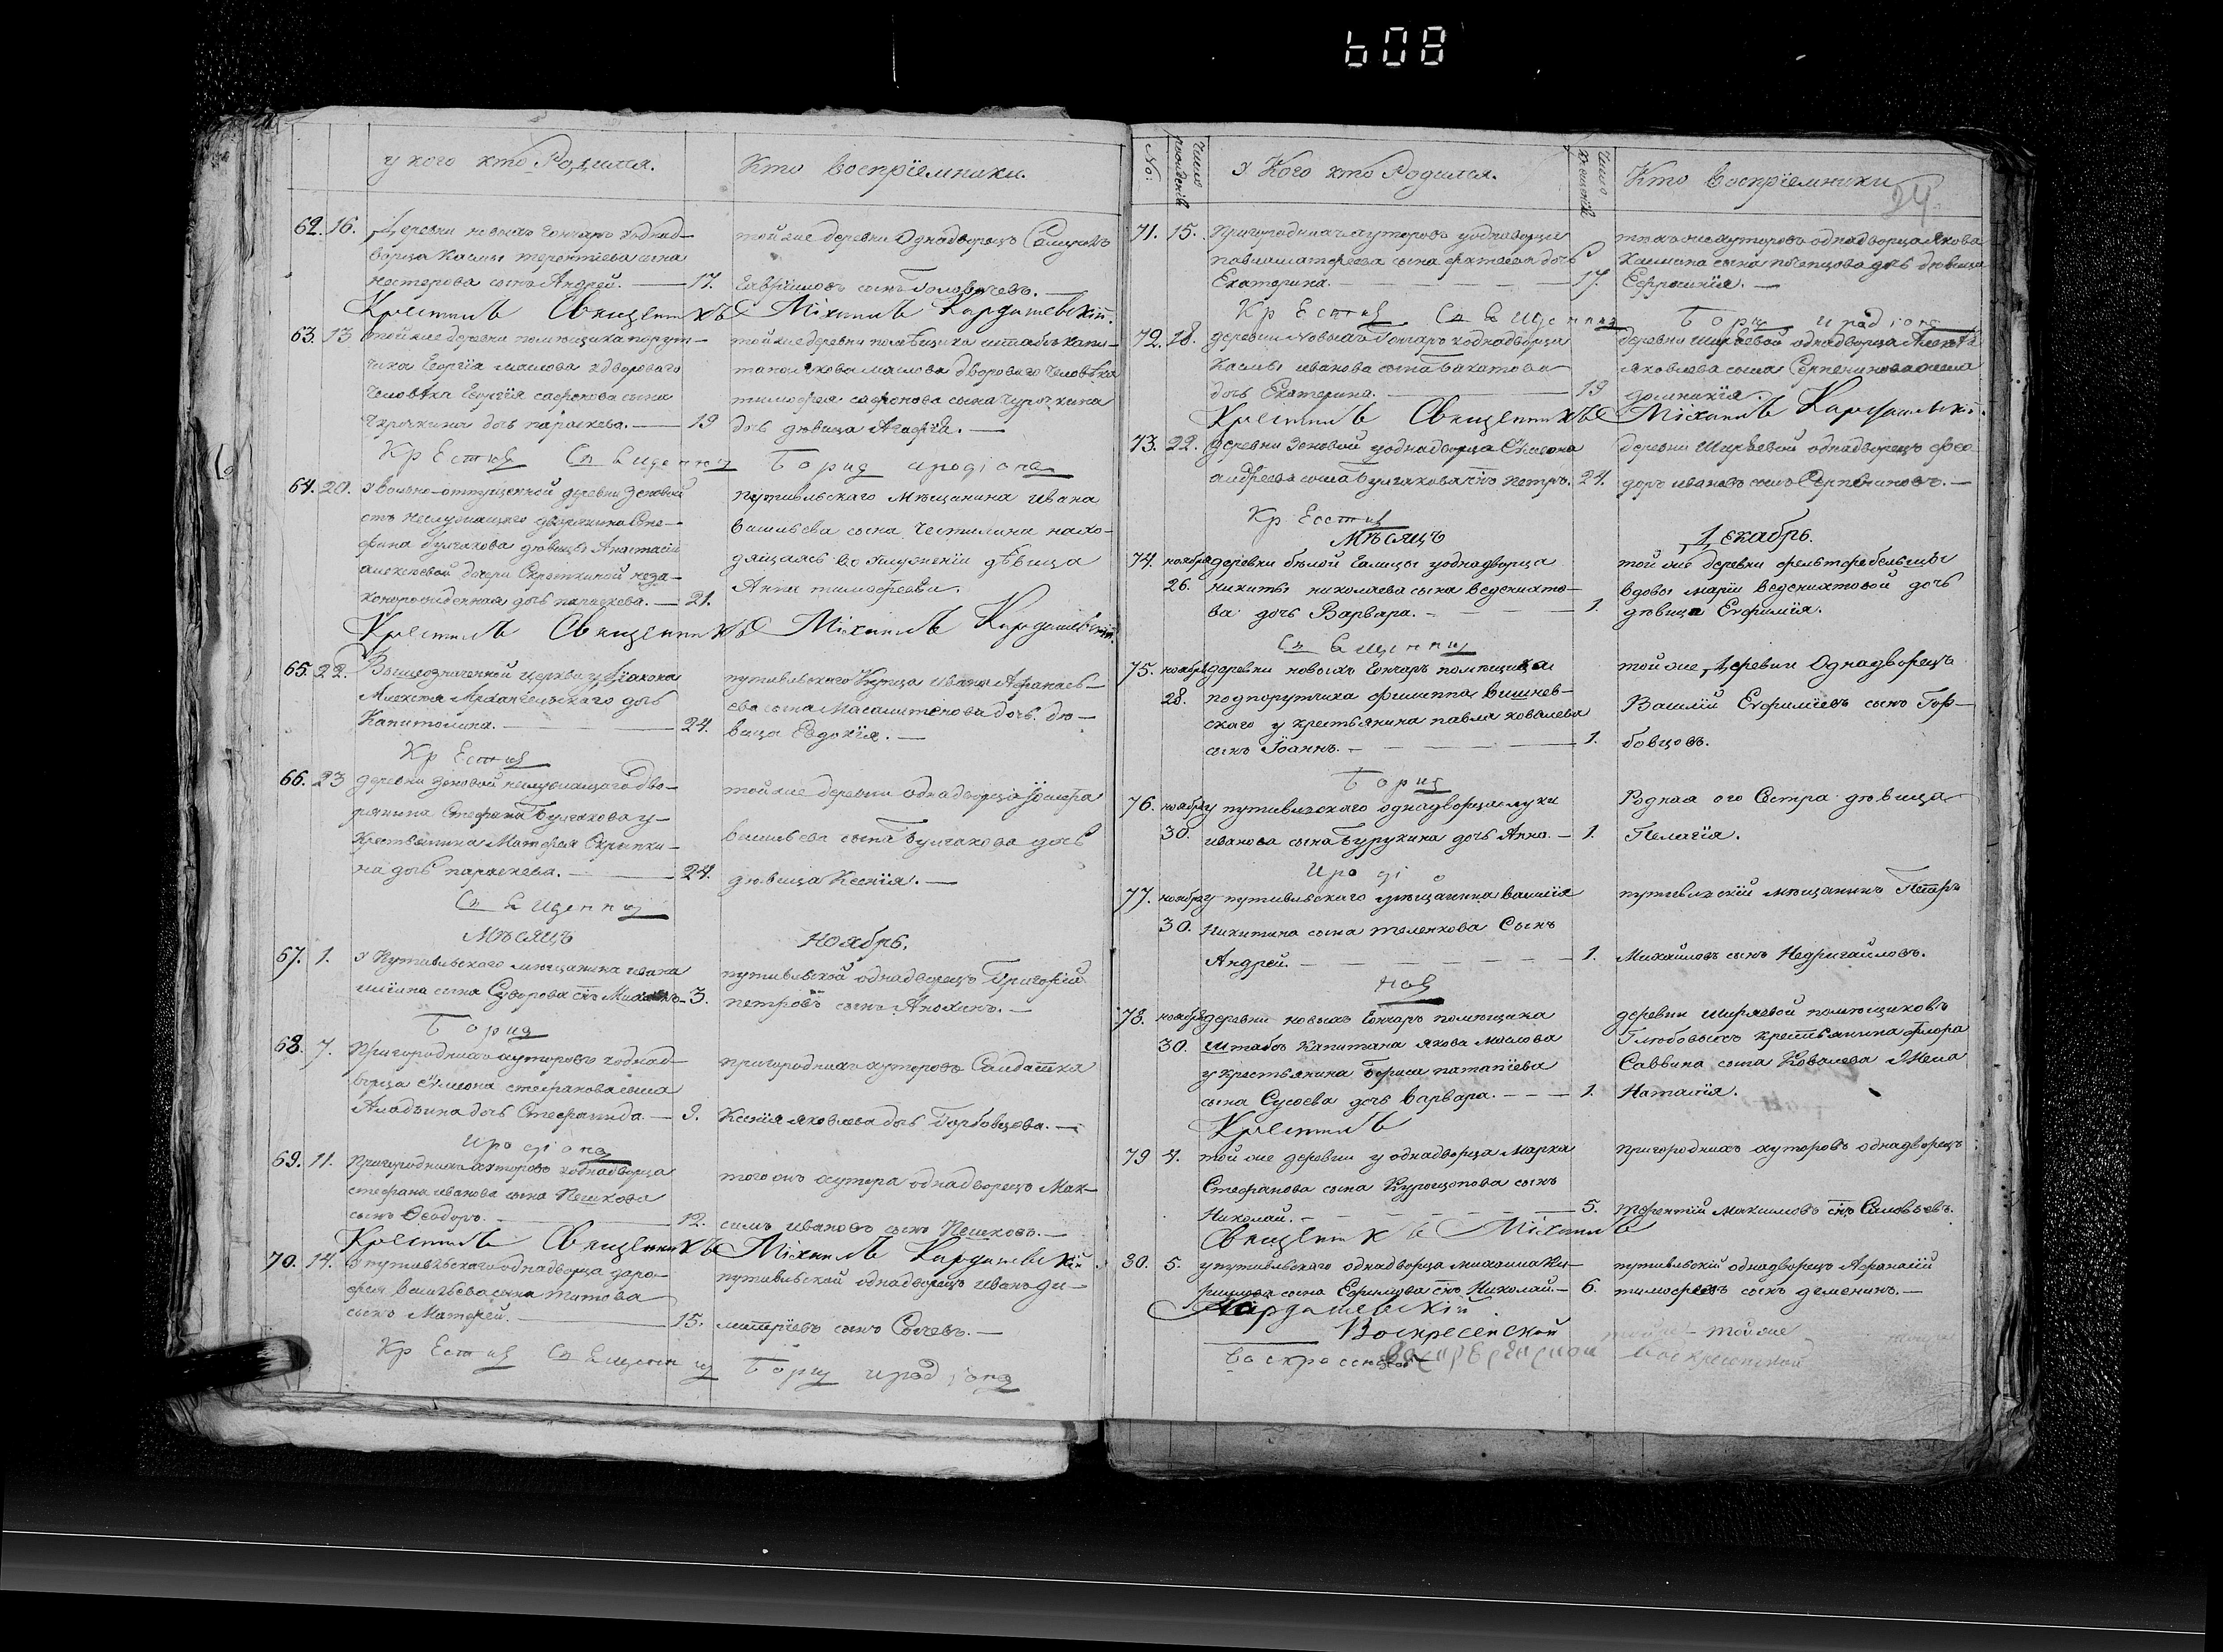 608
у кого кто Родился.
Кто воспріемники.
62. 16. Деревни новыхъ Гончаръ уоднад-
ворца Касмы терентіева сына
нестерова сынъ Андрей. — 17.
тойже деревни Однадворецъ
Гавріиловъ сынъ
Крестилъ Священникъ Міхаилъ Кардашевскій.
63. 13 тойже деревни помѣщика порут-
чика Георгія маслова удвороваго
человѣка Георгія сафонова сына
дочь параскева. — 19
тойже деревни помѣщика штабъ капи-
тана якова маслова двороваго человѣка
тимофея сафонова сына
дочь дѣвица Агафія. —
Крестил Священник Борис иродіона
64. 20. у вольно-отпущенной деревни Зеновой
отъ неслужащаго дворянина Сте-
фана булгакова дѣвицы Анастасіи
алексеевой дочери Скрыпкиной неза-
коннорожденная дочь параскева. — 21.
путивльскаго Мѣщанина Ивана
васильева сына нахо-
дящаясь во служеніи дѣвица
Анна тимофеева.
Крестилъ Священникъ Міхаилъ Кардашевскій.
65. 22. Вышеозначенной церкви у діакона
Алексея Архангельскаго дочь
Капитолина. — 24.
путивльскаго Купца Ивана Афанасъ-
ева сына дочь дѣ-
вица Евдокія. —
Крестил
66. 23 деревни Зеновой неслужащаго дво-
рянина Стефана Булгакова у
Крестьянина Матфея Скрыпки-
на дочь параскева. — 24.
тойже деревни однадворца
васильева сына Булгакова дочь
дѣвица Ксенія. —
Священни
Мѣсяцъ Ноябрь.
67. 1. У Путивльскаго мѣщанина ивана
сына Суворова снъ — 3.
путивльской однадворецъ Григорій
петровъ сынъ Анохинъ. —
Борис
68. 7. Пригороднихъ хуторовъ уоднад-
ворца Симеона стефанова сына
Аладьина дочь Стефанида — 9.
пригороднихъ хуторовъ Салдатка
Ксенія яковлева дочь Горбовцова. —
иродіона
69. 11. Пригороднихъ хуторовъ уоднадворца
стефана иванова сына Пешкова
сынъ Феодоръ. — 12.
тогожъ хутора однадворецъ Мак-
симъ ивановъ сынъ Пешковъ. —
Крестилъ Священникъ Міхаилъ Кардашевскій.
70. 14. У путивльскаго однадворца доро-
фея васильева сына титова
сынъ Матфей. — 15.
путивльской однадворецъ иванъ ди-
митріевъ сынъ Сычевъ. —
Крестил Священник Борис иродіона
No: Число рожденія У Кого кто Родился. Число крещенія Кто воспріемники
24.
71. 15. Пригороднихъ хуторовъ уоднадворца
павла матфеева сына дочь
Екатерина. — 17.
тѣхъ же хуторовъ однадворца якова
сына дочь дѣвица
Ефросинія. —
Крестил Священник Борис иродіона
72. 18. деревни Новыхъ Гончаръ уоднадворца
Касмы иванова сына Бахатова
дочь Екатерина. — 19
деревни ширяевой однадворца
яковлева сына Серпенинова жена
домникія.
Крестилъ Священникъ Міхаилъ Кардашевскій.
73. 22. деревни Зеновой уоднадворца Симеона
андреева сына Булгакова снъ петръ. 24.
деревни Ширяевой однадворецъ фео-
доръ ивановъ сынъ Серпениновъ. —
Крестил
Мѣсяцъ Декабрь.
74. ноября 26. деревни бѣлой Галицы уоднадворца
никиты николаева сына веденикто-
ва дочь Варвара. — 1.
той же деревни
вдовы маріи Ведениктовой дочь
дѣвица Евфимія.
Священник
75. ноября 28. деревни новыхъ Гончаръ помѣщика
подпорутчика филиппа Вишнев-
скаго у крестьянина павла ковалева
сынъ Іоаннъ. — 1.
той же Деревни Однадворецъ
Василій Евфиміевъ сынъ Гор-
бовцовъ.
Борис
76. ноября 30. у путивльскаго однадворца луки
иванова сына Бурухина дочь Анна. — 1.
Родная его Сестра дѣвица
Пелагія.
Ироді
77. ноября 30. у путивльскаго мѣщанина василія
Никитина сына теленкова Сынъ
Андрей. — 1.
путивльскій мѣщанинъ Петръ
Михайловъ сынъ Недригайловъ.
нов
78. ноября 30. деревни новыхъ Гончаръ помѣщика
Штабъ Капитана якова маслова
у крестьянина Бориса патапіева
сына Сусоева дочь варвара. — 1.
деревни ширяевой помѣщиковъ
Глюбовыхъ крестьянина флора
Саввина сына Ковалева Жена
Наталія.
Крестилъ
79 4. той же деревни у однадворца марка
Стефанова сына сынъ
Николай. — 5.
пригороднихъ хуторовъ однадворецъ
терентій максимовъ снъ Саловьевъ.
Священникъ Міхаилъ
30. 5. у путивльскаго однадворца михаила Ки-
рилова сына Ефимцова снъ Николай. — 6.
путивльскій однадворецъ Афанасій
тимофеевъ сынъ деменинъ. —
Кардашевскій.
Воскресенской
воскресенской
тойже тойже
воскресенской